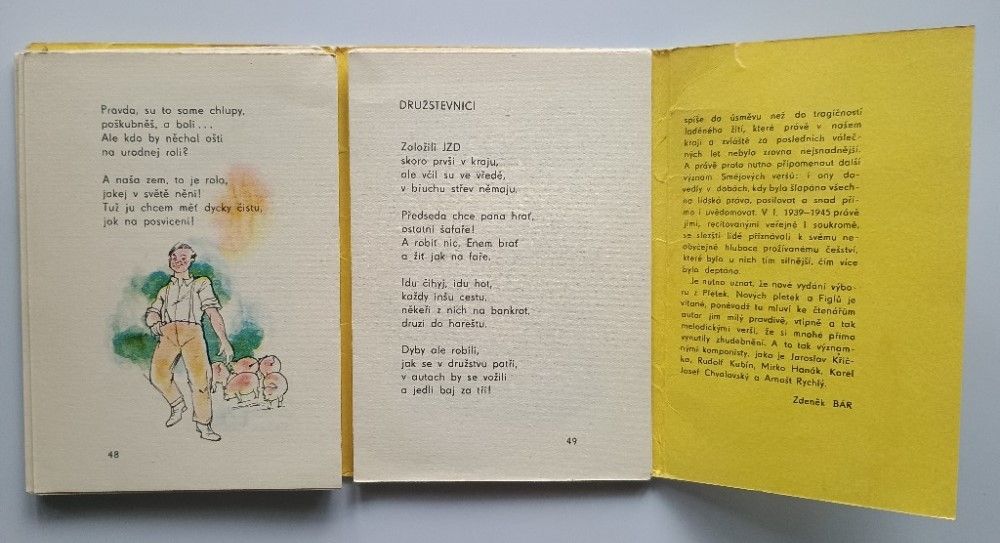 Pravda, su to same chlupy,
poškubněš, a boli...
Ale kdo by něchal ošti
na urodnej roli?
A naša zem, to je rola,
jakej v světě něni!
Tuž ju chcem měť dycky čistu,
jak na posviceni!
48
DRUŽSTEVNICI
Založili JZD
skoro prvši v kraju,
ale včil su ve vředě,
v břuchu střev němaju.
Předseda chce pana hrať,
ostatni šafaře!
A robiť nic. Enem brať
a žiť jak na faře.
Idu čihyj, idu hot,
každy inšu cestu,
někeři z nich na bankrot,
druzi do hareštu.
Dyby ale robili,
jak se v družstvu patři,
v autach by se vožili
a jedli baj za tři!
49
spíše do úsměvu než do tragičnosti
laděného žití, které právě v našem
kraji a zvláště za posledních váleč-
ných let nebylo zrovna nejsnadnější.
A právě proto nutno připomenout další
význam Smějových veršů: i ony do-
vedly v dobách, kdy byla šlapána všech-
na lidská práva, posilovat a snad pří-
mo i uvědomovat. V l. 1939–1945 právě
jimi, recitovanými veřejně i soukromě,
se slezští lidé přiznávali k svému ne-
obyčejně hluboce prožívanému češství,
které bylo u nich tím silnější, čím více
bylo deptáno.
Je nutno uznat, že nové vydání výbo-
ru z Pletek, Nových pletek a Figlů je
vítané, poněvadž tu mluví ke čtenářům
autor jim milý pravdivě, vtipně a tak
melodickými verši, že si mnohé přímo
vynutily zhudebnění. A to tak význam-
nými komponisty, jako je Jaroslav Křič-
ka, Rudolf Kubín, Mirko Hanák, Karel
Josef Chvalovský a Arnošt Rychlý.
Zdeněk BÁR